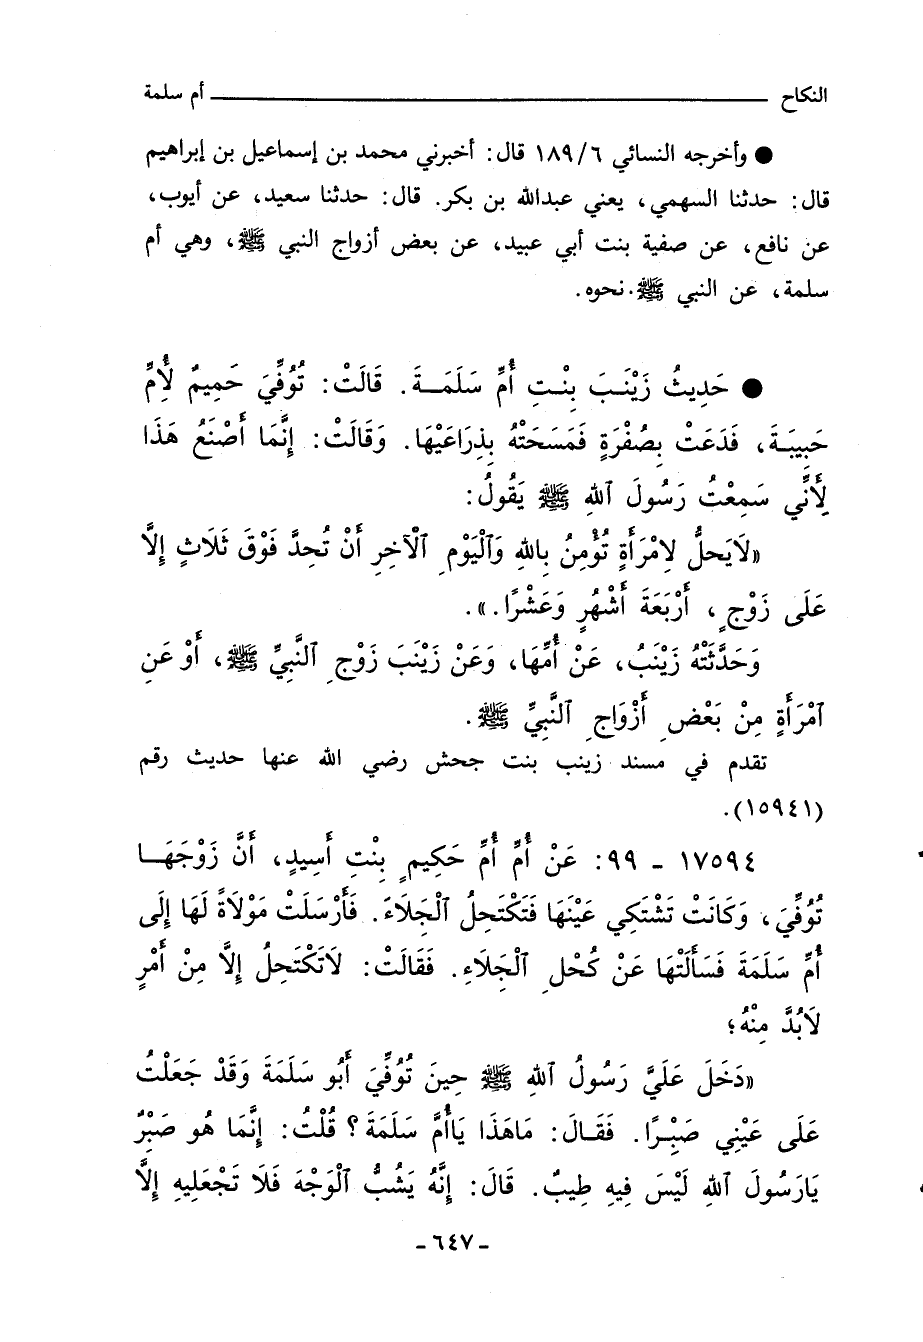 النكاح ــــــــــــــــــــــــــــــــ أم سلمة
● وأخرجه النسائي ٦/ ١٨٩ قال: أخبرني محمد بن إسماعيل بن إبراهيم
قال: حدثنا السهمي، يعني عبدالله بن بكر. قال: حدثنا سعيد، عن أيوب،
عن نافع، عن صفية بنت أبي عبيد، عن بعض أزواج النبي ﷺ، وهي أم
سلمة، عن النبي ﷺ. نحوه.
● حَدِيثُ زَيْنَبَ بِنْتِ أُمِّ سَلَمَـةَ. قَالَتْ: تُوُفِّيَ حَمِيمٌ لِأُمِّ
حَبِيبَةَ، فَدَعَتْ بِصُفْرَةٍ فَمَسَحَتْهُ بِذِرَاعَيْهَا. وَقَالَتْ: إِنَّمَا أَصْنَعُ هَذَا
لِأَنِّي سَمِعْتُ رَسُولَ ٱللهِ ﷺ يَقُولُ:
«لَايَحِلُّ لِامْرَأَةٍ تُؤْمِنُ بِاللهِ وَٱلْيَوْمِ ٱلْآخِرِ أَنْ تُحِدَّ فَوْقَ ثَلَاثٍ إِلَّا
عَلَى زَوْجٍ، أَرْبَعَةَ أَشْهُرٍ وَعَشْرًا.».
وَحَدَّثَتْهُ زَيْنَبُ، عَنْ أُمِّهَا، وَعَنْ زَيْنَبَ زَوْجِ ٱلنَّبِيِّ ﷺ، أَوْ عَنِ
ٱمْرَأَةٍ مِنْ بَعْضِ أَزْوَاجِ ٱلنَّبِيِّ ﷺ.
تقدم في مسند زينب بنت جحش رضي الله عنها حديث رقم
(١٥٩٤١).
١٧٥٩٤ ـ ٩٩: عَنْ أُمِّ أُمِّ حَكِيمٍ بِنْتِ أَسِيدٍ، أَنَّ زَوْجَهَـا
تُوُفِّيَ، وَكَانَتْ تَشْتَكِي عَيْنَهَا فَتَكْتَحِلُ ٱلْجَلَاءَ. فَأَرْسَلَتْ مَوْلَاةً لَهَا إِلَى
أُمِّ سَلَمَةَ فَسَأَلَتْهَا عَنْ كُحْلِ ٱلْجِلَاءِ. فَقَالَتْ: لَاتَكْتَحِلُ إِلَّا مِنْ أَمْرٍ
لَابُدَّ مِنْهُ؛
«دَخَلَ عَلَيَّ رَسُولُ ٱللهِ ﷺ حِينَ تُوُفِّيَ أَبُو سَلَمَةَ وَقَدْ جَعَلْتُ
عَلَى عَيْنِي صَبِرًا. فَقَالَ: مَاهَذَا يَاأُمَّ سَلَمَةَ؟ قُلْتُ: إِنَّمَا هُو صَبِرٌ
يَارَسُولَ ٱللهِ لَيْسَ فِيهِ طِيبٌ. قَالَ: إِنَّهُ يَشُبُّ ٱلْوَجْهَ فَلَا تَجْعَلِيهِ إِلَّا
ـ ٦٤٧ ـ